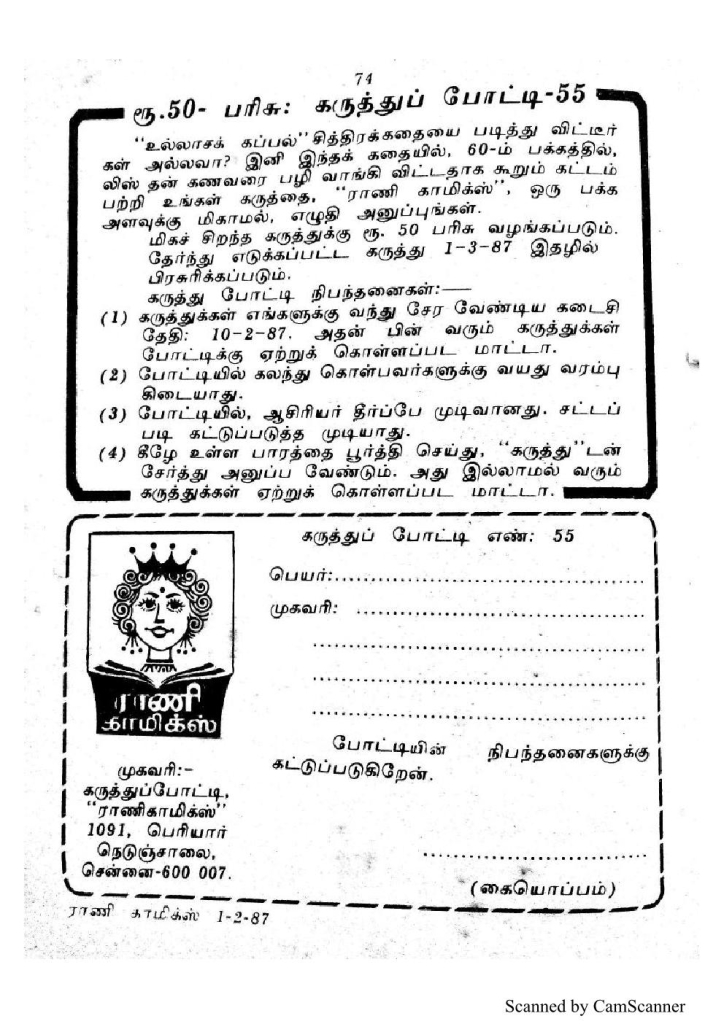 74
ரூ.50- பரிசு: கருத்துப் போட்டி-55
"உல்லாசக் கப்பல்" சித்திரக்கதையை படித்து விட்டீர்
கள் அல்லவா? இனி இந்தக் கதையில், 60-ம் பக்கத்தில்,
லிஸ் தன் கணவரை பழி வாங்கி விட்டதாக கூறும் கட்டம்
பற்றி உங்கள் கருத்தை, "ராணி காமிக்ஸ்", ஒரு பக்க
அளவுக்கு மிகாமல், எழுதி அனுப்புங்கள்.
மிகச் சிறந்த கருத்துக்கு ரூ. 50 பரிசு வழங்கப்படும்.
தேர்ந்து எடுக்கப்பட்ட கருத்து 1-3-87 இதழில்
பிரசுரிக்கப்படும்.
கருத்து போட்டி நிபந்தனைகள்:—
(1) கருத்துக்கள் எங்களுக்கு வந்து சேர வேண்டிய கடைசி
தேதி: 10-2-87. அதன் பின் வரும் கருத்துக்கள்
போட்டிக்கு ஏற்றுக் கொள்ளப்பட மாட்டா.
(2) போட்டியில் கலந்து கொள்பவர்களுக்கு வயது வரம்பு
கிடையாது.
(3) போட்டியில், ஆசிரியர் தீர்ப்பே முடிவானது. சட்டப்
படி கட்டுப்படுத்த முடியாது.
(4) கீழே உள்ள பாரத்தை பூர்த்தி செய்து, "கருத்து"டன்
சேர்த்து அனுப்ப வேண்டும். அது இல்லாமல் வரும்
கருத்துக்கள் ஏற்றுக் கொள்ளப்பட மாட்டா.
கருத்துப் போட்டி எண்: 55
பெயர்:..........................................
முகவரி: .......................................
ராணி
காமிக்ஸ்
போட்டியின் நிபந்தனைகளுக்கு
கட்டுப்படுகிறேன்.
முகவரி:-
கருத்துப்போட்டி,
"ராணிகாமிக்ஸ்"
1091, பெரியார்
நெடுஞ்சாலை,
சென்னை-600 007.
(கையொப்பம்)
ராணி காமிக்ஸ் 1-2-87
Scanned by CamScanner